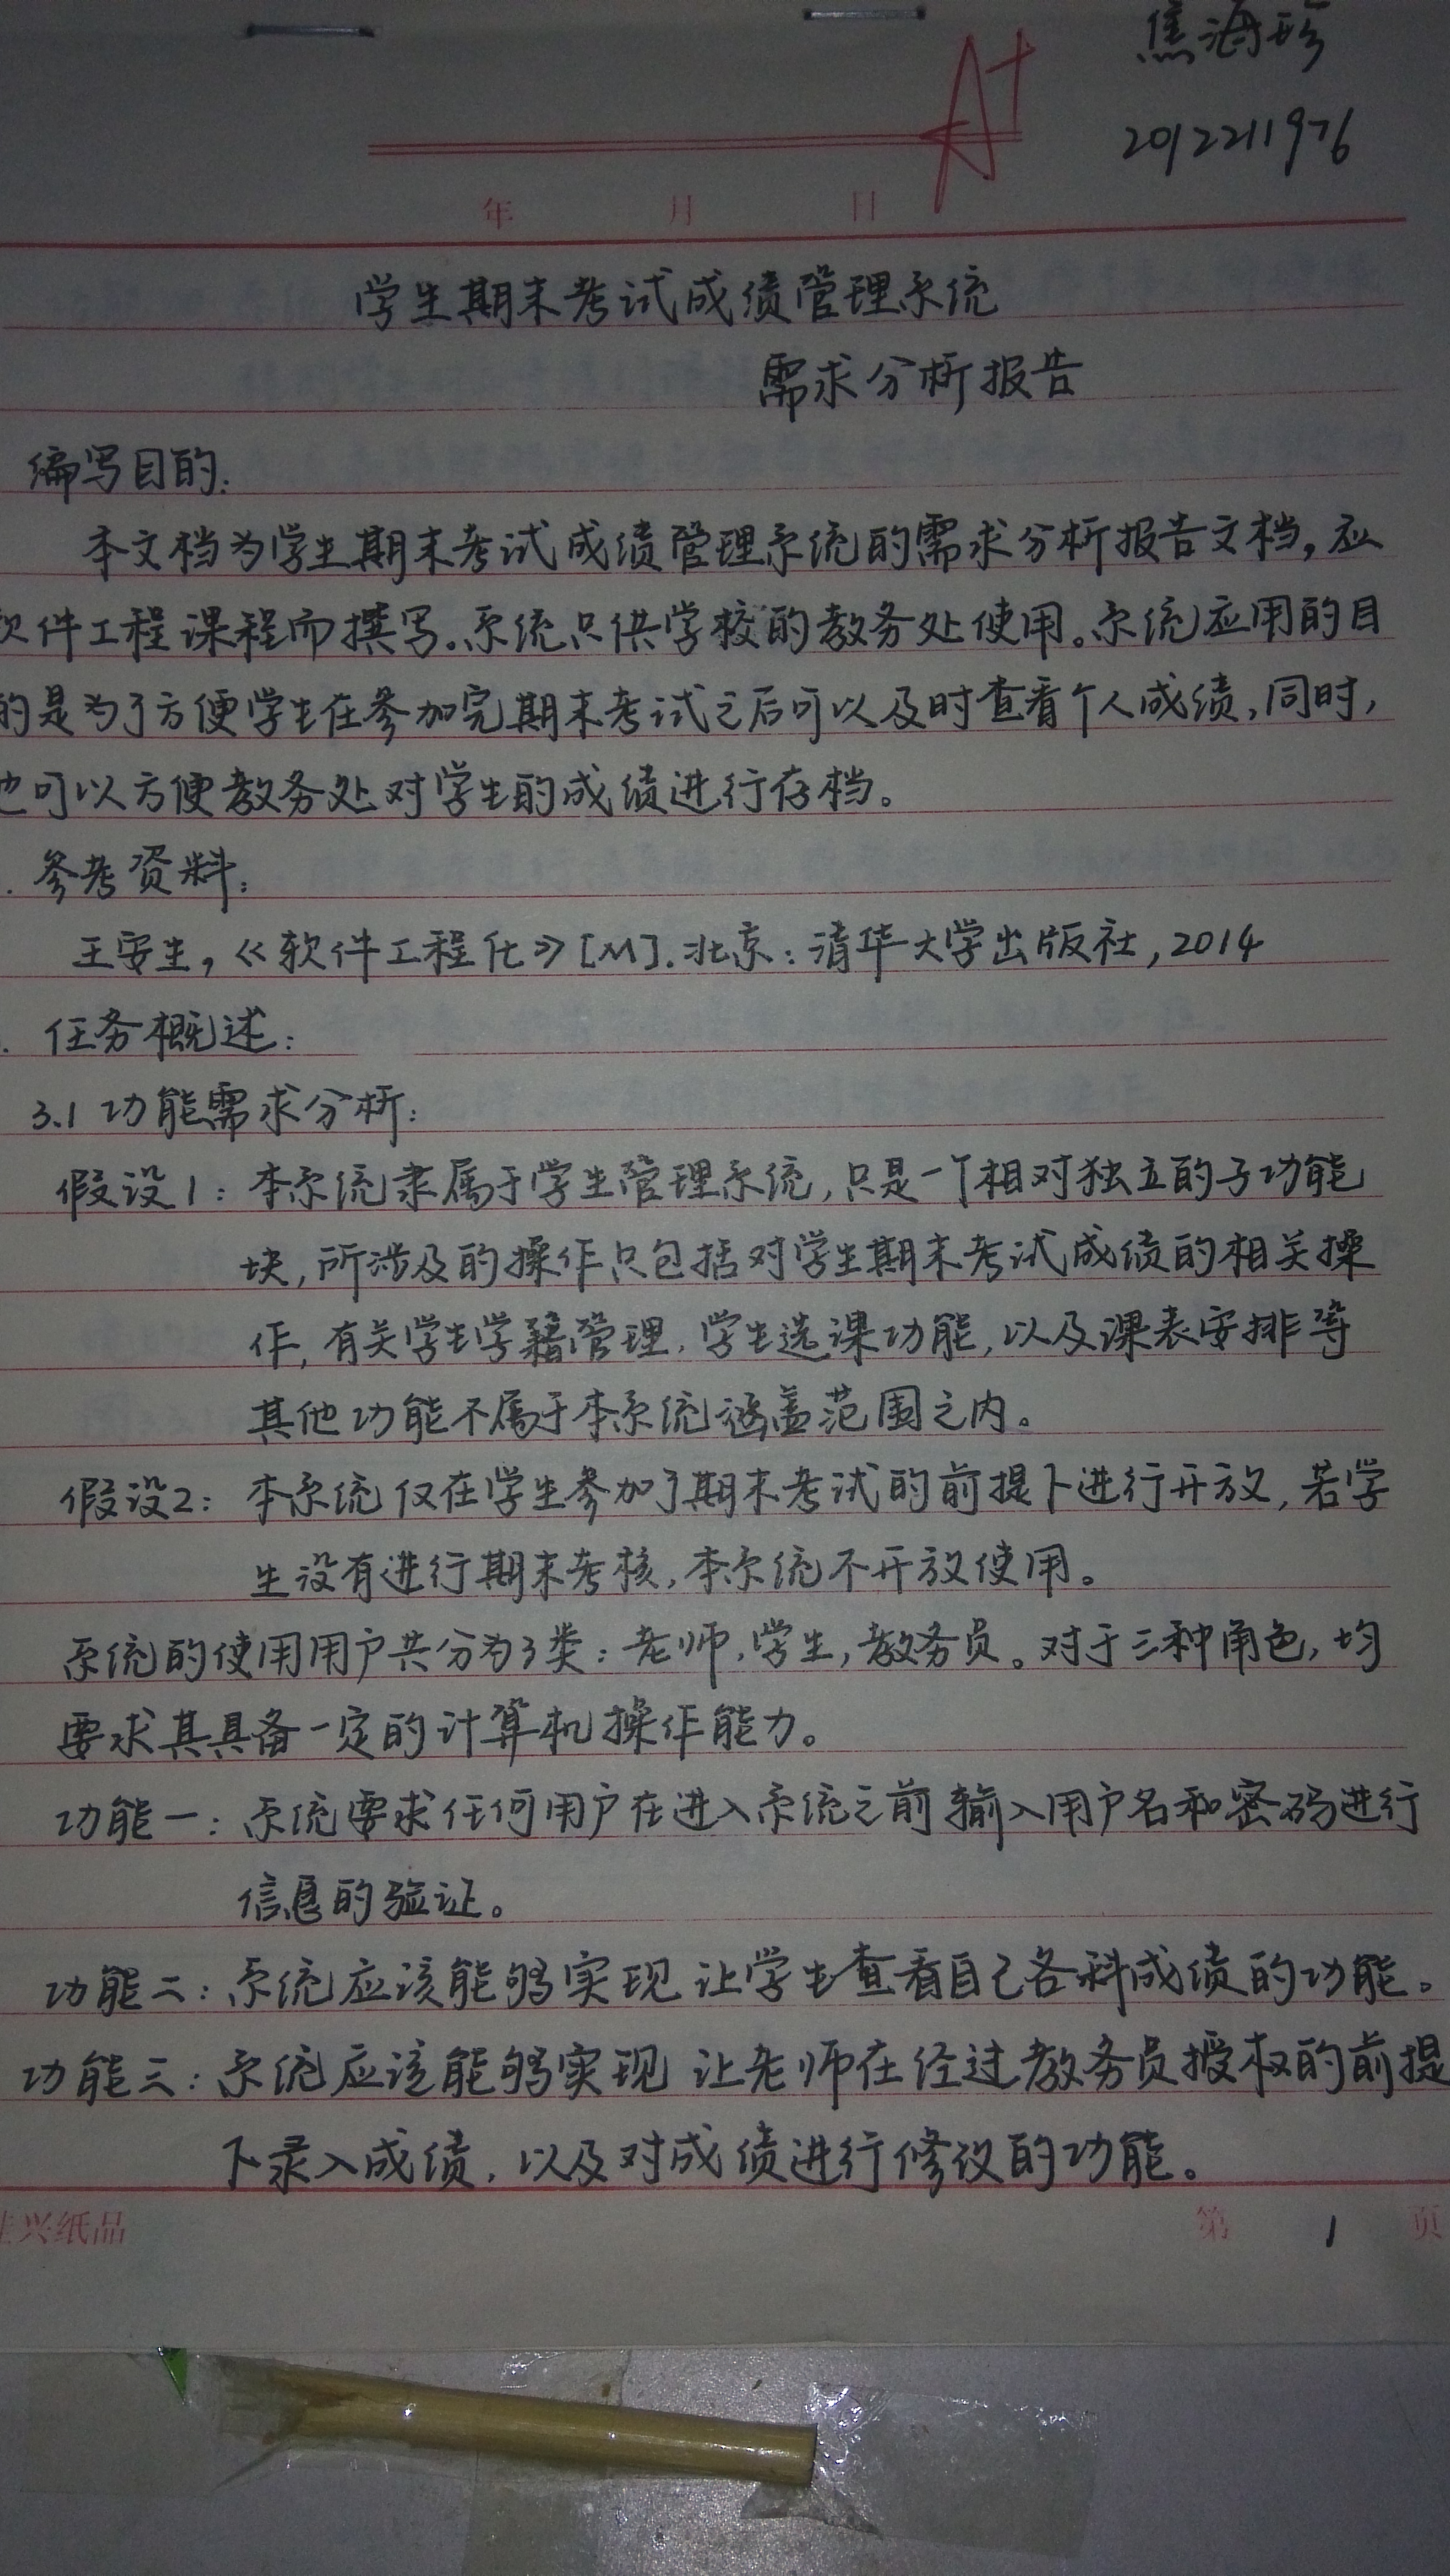 焦海珍
A+
2012211976
年 月 日
学生期末考试成绩管理系统
需求分析报告
编写目的:
本文档为学生期末考试成绩管理系统的需求分析报告文档,应
软件工程课程而撰写。系统只供学校的教务处使用。系统应用的目
的是为了方便学生在参加完期末考试之后可以及时查看个人成绩,同时,
也可以方便教务处对学生的成绩进行存档。
. 参考资料:
王安生,《软件工程化》[M].北京:清华大学出版社,2014
. 任务概述:
3.1 功能需求分析:
假设1:本系统隶属于学生管理系统,只是一个相对独立的子功能
块,所涉及的操作只包括对学生期末考试成绩的相关操
作,有关学生学籍管理,学生选课功能,以及课表安排等
其他功能不属于本系统涵盖范围之内。
假设2:本系统仅在学生参加了期末考试的前提下进行开放,若学
生没有进行期末考核,本系统不开放使用。
系统的使用用户共分为3类:老师,学生,教务员。对于三种角色,均
要求其具备一定的计算机操作能力。
功能一:系统要求任何用户在进入系统之前输入用户名和密码进行
信息的验证。
功能二:系统应该能够实现让学生查看自己各科成绩的功能。
功能三:系统应该能够实现让老师在经过教务员授权的前提
下录入成绩,以及对成绩进行修改的功能。
兴纸品
第 1 页